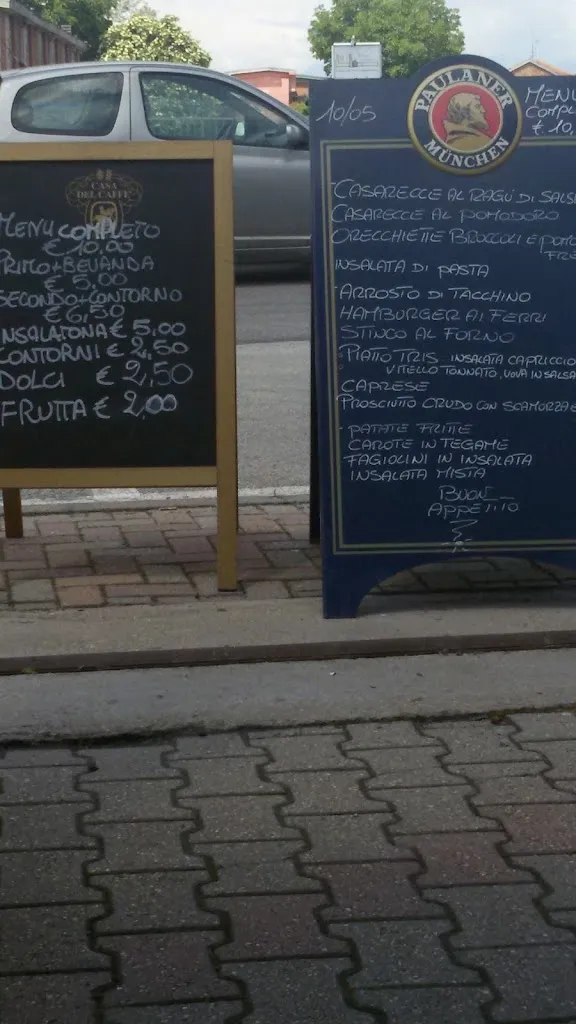 CASA
DEL CAFFÈ
MENU COMPLETO
€ 10,00
PRIMO+BEVANDA
€ 5,00
SECONDO+CONTORNO
€ 6,50
INSALATONA € 5,00
CONTORNI € 2,50
DOLCI € 2,50
FRUTTA € 2,00
PAULANER
MÜNCHEN
10/05
MENU
COMPL
€ 10,
CASARECCE AL RAGÙ DI SALS
CASARECCE AL POMODORO
ORECCHIETTE BROCCOLI E POMO
FRE
INSALATA DI PASTA
ARROSTO DI TACCHINO
HAMBURGER AI FERRI
STINCO AL FORNO
PIATTO TRIS INSALATA CAPRICCIO
VITELLO TONNATO, UOVA IN SALSA
CAPRESE
PROSCIUTTO CRUDO CON SCAMORZA E
PATATE FRITTE
CAROTE IN TEGAME
FAGIOLINI IN INSALATA
INSALATA MISTA
BUON
APPETITO